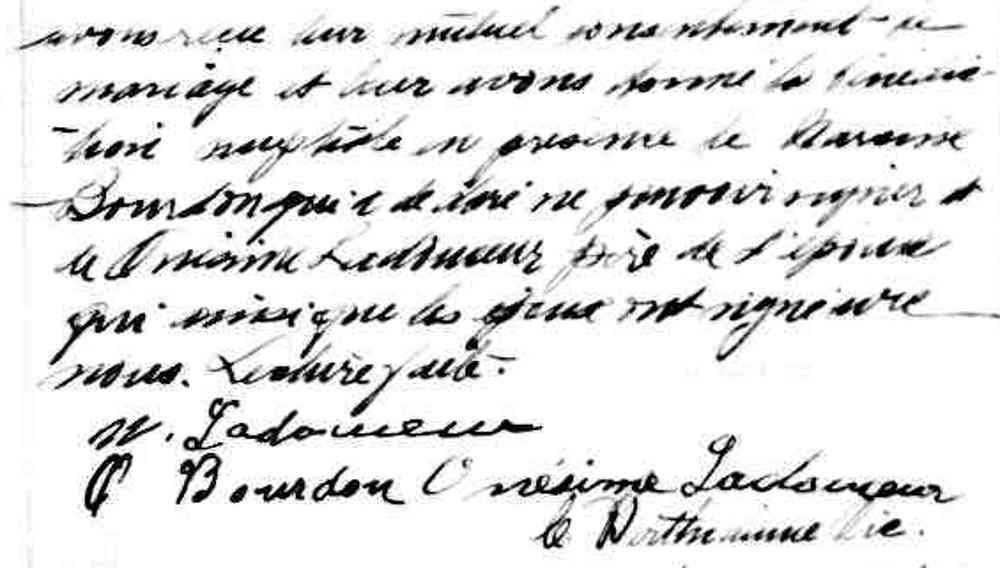 avons reçu leur mutuel consentement de
mariage et leur avons donné la bénédic-
tion nuptiale en présence de
Bourdon qui a déclaré ne pouvoir signer et
de Onésime Ladouceur père de l'épouse
qui ainsi que les époux ont signé avec
nous. Lecture faite.
Ladouceur
Bourdon Onésime Ladouceur
vic.